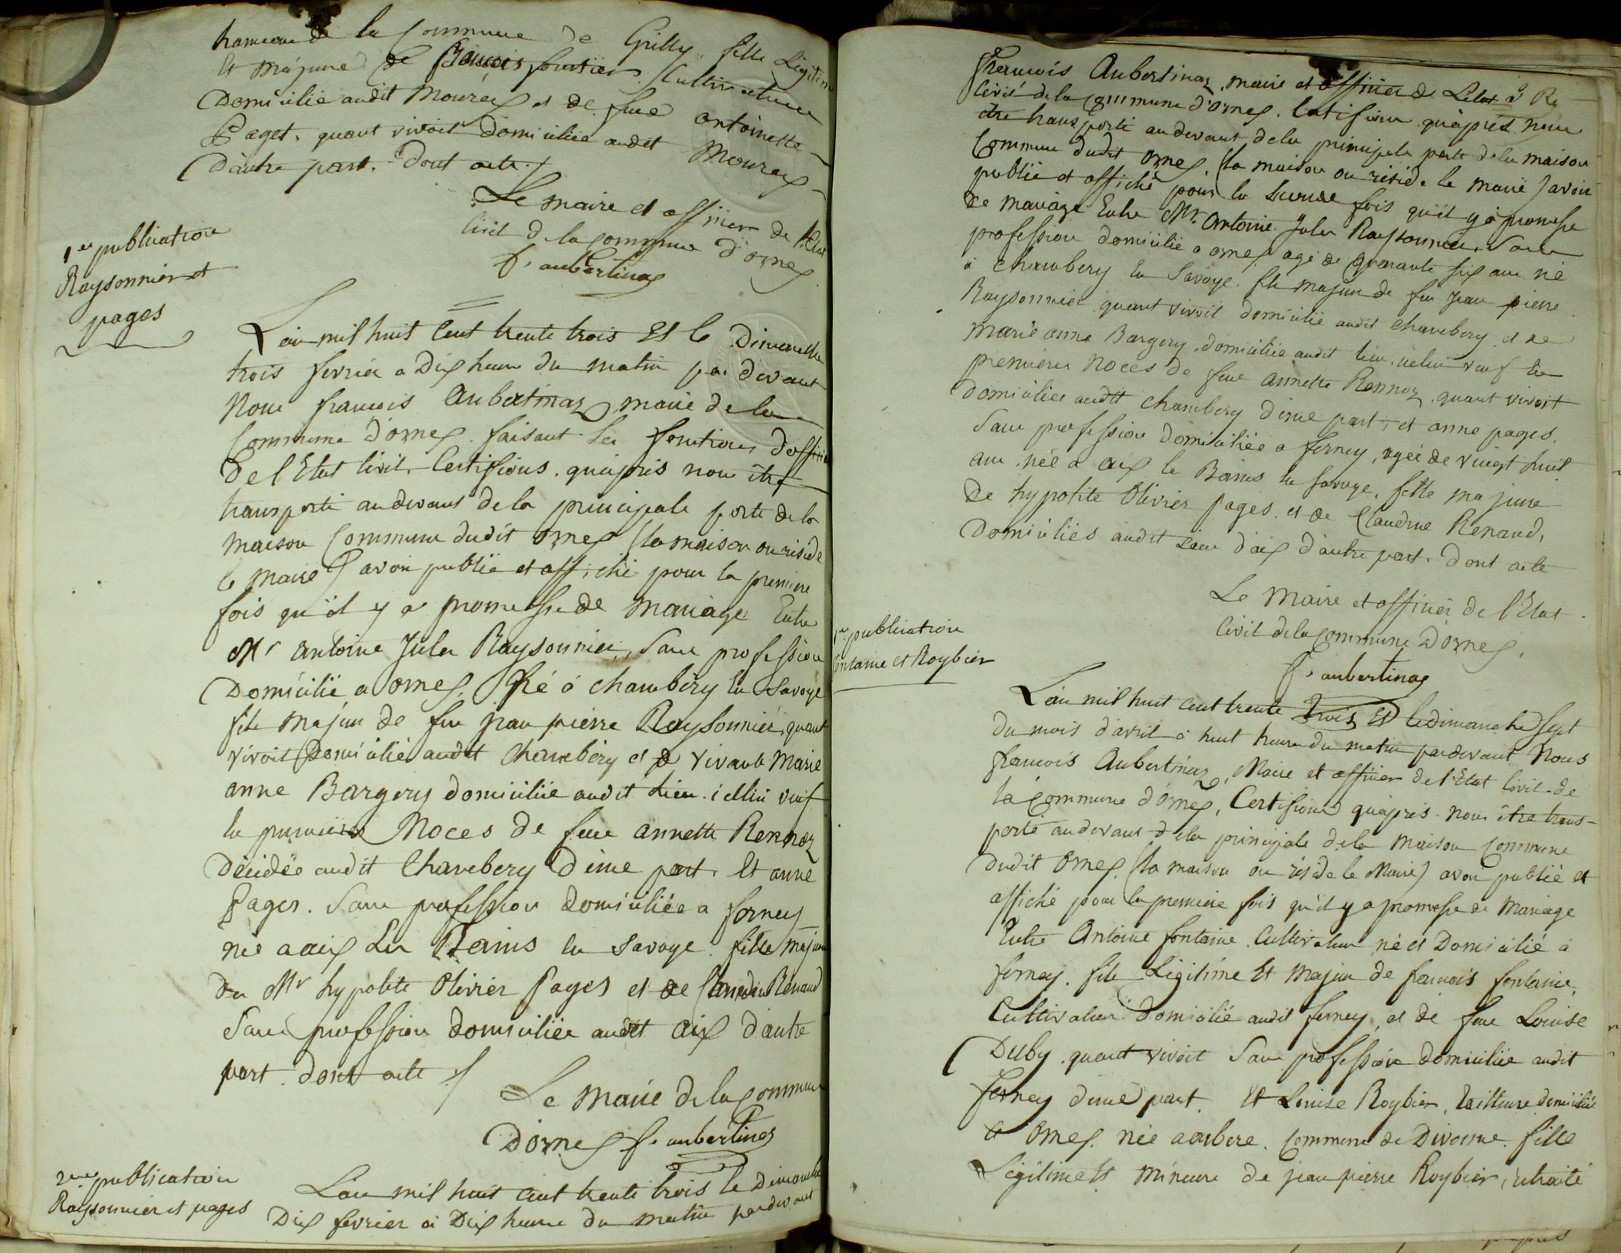 hameau de la Commune de Grilly fille Légitime
Et majeure de François fournier Cultivateur
Domicilié audit Mourex et de feue antoinette
Paget, quant vivoit domiciliée audit Mourex
D'autre part. Dont acte
Le maire et officier de l'Etat
Civil de la Commune d'ornex
f. aubertinaz
1ere publication
Raysonnier et
pages
L'an mil huit Cent trente trois Et le Dimanche
trois fevrier a Dix heure du matin par devant
Nous françois Aubertinaz, maire de la
Commune d'ornex faisant les fonctions d'officier
De l'Etat Civil, Certifions qu'après nous être
transporté audevant de la principale porte de la
maison Commune dudit ornex (la maison ou réside
le maire) avoir publié et affiché pour la premiere
fois qu'il y a promesse de mariage Entre
Mr antoine Jules Raysonnier, Sans profession
Domicilié a ornex, Né à chambéry en Savoye
fils majeur de feu jean pierre Raysonnier, quant
vivoit Domicilié audit Chambéry et de vivante Marie
anne Bargery domiciliée audit Lieu. icellui veuf
en premieres Noces de feue annette Rennoz
Décidée audit Chambery D'une part. Et anne
Pages. Sans profession Domiciliée a ferney
née a aix Les Bains en Savoye fille majeure
de Mr hypolite Olivier Pages et de Claudine Renaud
Sans profession domiciliée audit aix d'autre
part. dont acte
Le Maire de la Commune
D'ornex f. aubertinaz
2me publication
Raysonnier et pages
L'an mil huit cent trente trois le Dimanche
Dix fevrier à Dix heure du matin pardevant
françois Aubertinaz, maire et officier de l'etat
Civil de la Commune d'ornex. Certifions qu'après nous
être transporté audevant de la principale porte de la maison
Commune dudit ornex, (la maison ou réside le maire) avoir
publié et affiché pour la Seconde fois qu'il y a promesse
de mariage Entre Mr. antoine Jules Raysonnier, Sans
profession domicilié a ornex agé de quarante six ans né
à chambery en Savoye. fils majeur de feu jean pierre
Raysonnier quant vivoit domicilié audit chambery et de
marie anne Bargery, domiciliée audit lieu, icelui veuf en
premieres noces de feue annette Rennoz, quant vivoit
domiciliée audit chambery d'une part, et anne pages.
Sans profession domiciliée a ferney, agée de vingt huit
ans, née a aix les Bains en savoye, fille majeure
de hypolite Olivier pages et de Claudine Renaud,
Domiciliés audit lieu d'aix d'autre part. Dont acte
Le Maire et officier de l'Etat
Civil de la Commune D'ornex,
f. aubertinaz
1ere publication
fontaine et Roybier
L'an mil huit cent trente trois Et le dimanche sept
du mois d'avril à huit heure du matin pardevant Nous
françois Aubertinaz, Maire et officier de l'Etat Civil de
la Commune d'ornex, Certifions qu'après nous être trans-
porté audevant de la principale de la maison Commune
dudit Ornex (la maison ou réside le Maire) avoir publié et
affiché pour la premiere fois qu'il y a promesse de Mariage
Entre Antoine fontaine, Cultivateur né et Domicilié à
ferney. fils Légitime Et Majeur de françois fontaine,
Cultivateur domicilié audit ferney, et de feue Louise
Duby quant vivoit Sans profession domiciliée audit
ferney d'une part. Et Louise Roybier, tailleuse domiciliée
a ornex, née a Commune de Divonne, fille
Légitime Et mineure de jean pierre Roybier,